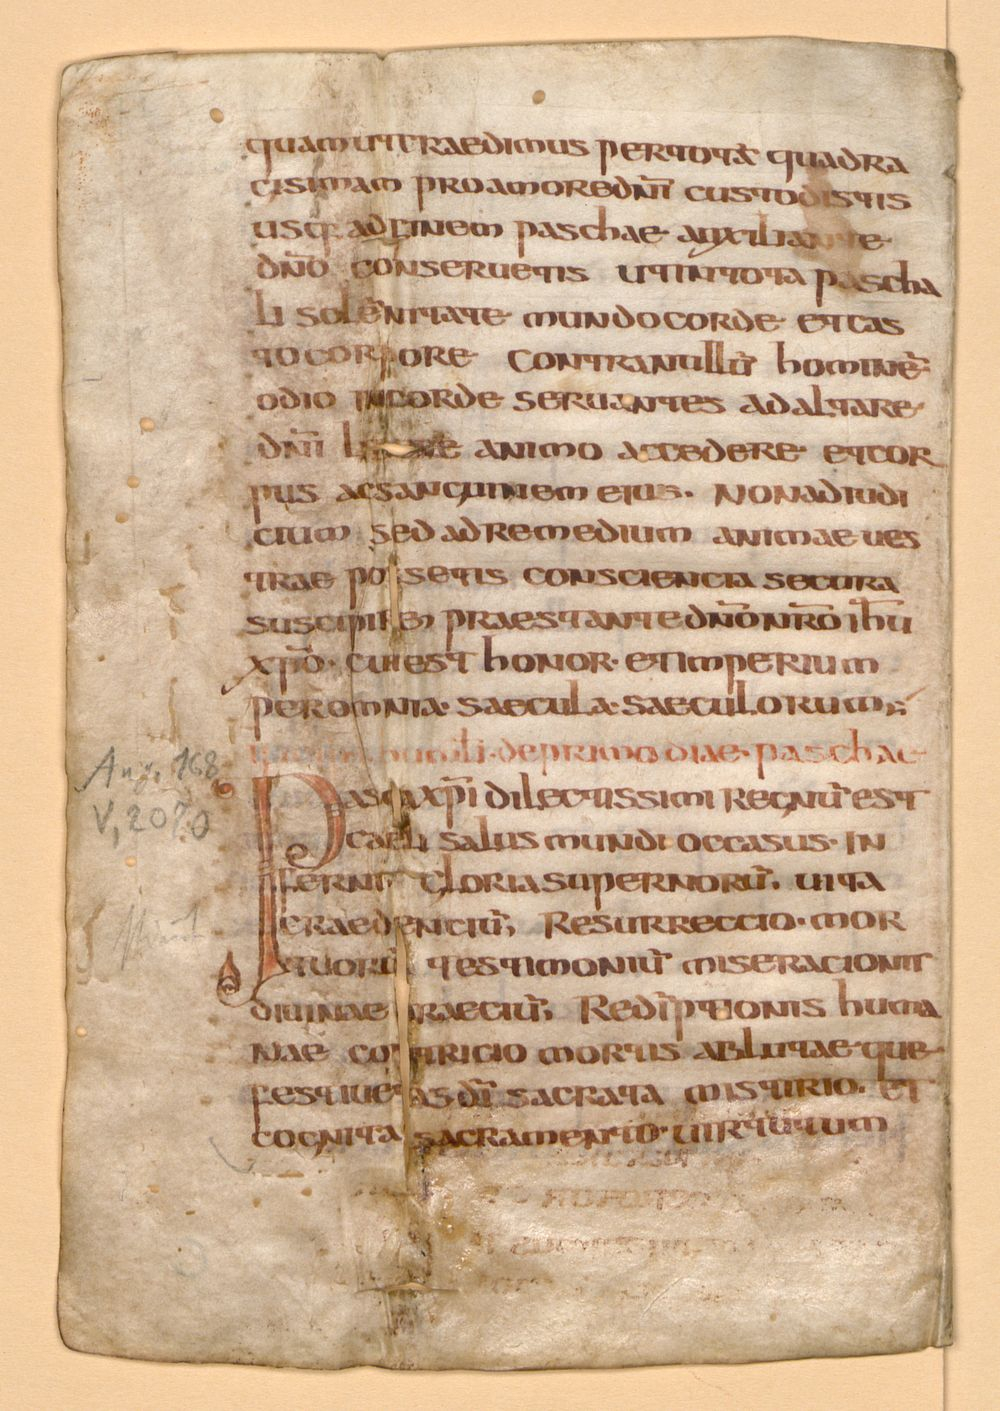 quam ut craedimus per totā quadra
gisimam pro amore dn̄i custodistis
usq; ad finem paschae auxiliante
dn̄o conseruetis ut in tota pascha
li solēnitate mundo corde et cas
to corpore contra nullū hominē
odio in corde seruantes ad altare
dn̄i libere animo accedere et cor
pus ac sanguinem eius. Non ad iudi
cium sed ad remedium animae ues
trae possetis consciencia secura
suscipirem praestante dn̄o nr̄o ihū
xp̄o. cui est honor et imperium
per omnia saecula saeculorum;
de primo diae paschae
Pascha xp̄i dilectissimi regnū est
caeli salus mundi occasus. in
ferni gloria supernorū. uita
craedenciū; Resurreccio. mor
tuorū testimoniū miseracionis
diuinae praeciū; Redēptionis huma
nae contricio mortis ablutae que
festiuetas dī sacrata mistirio. et
cognita sacramento. uirtutum
Aug. 168
V, 2070